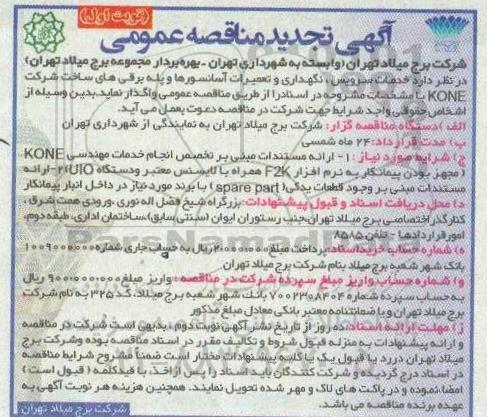 (نوبت اول)
آگهی تجدید مناقصه عمومی
شرکت برج میلاد تهران (وابسته به شهرداری تهران - بهره‌بردار مجموعه برج میلاد تهران)
در نظر دارد خدمات سرویس، نگهداری و تعمیرات آسانسورها و پله برقی های ساخت شرکت
KONE با مشخصات مشروحه در اسناد را از طریق مناقصه عمومی واگذار نماید. بدین وسیله از
اشخاص حقوقی واجد شرایط جهت شرکت در مناقصه دعوت بعمل می آید.
الف) دستگاه مناقصه گزار: شرکت برج میلاد تهران به نمایندگی از شهرداری تهران
ب) مدت قرارداد: ۲۴ ماه شمسی
ج) شرایط مورد نیاز: ۱- ارائه مستندات مبنی بر تخصص انجام خدمات مهندسی KONE
(مجهز بودن پیمانکار به نرم افزار F2K همراه با لایسنس معتبر و دستگاه UIO) ۲- ارائه
مستندات مبنی بر وجود قطعات یدکی (spare part) با برند مورد نیاز در داخل انبار پیمانکار
د) محل دریافت اسناد و قبول پیشنهادات: بزرگراه شیخ فضل اله نوری، ورودی همت شرق،
کنارگذر اختصاصی برج میلاد تهران، جنب رستوران ایوان (سنتی سابق)، ساختمان اداری، طبقه دوم،
امور قراردادها - تلفن: ۸۵۸۵
ه) شماره حساب خرید اسناد: پرداخت مبلغ ۲،۰۰۰،۰۰۰ ریال به حساب جاری شماره
بانک شهر شعبه برج میلاد بنام شرکت برج میلاد تهران
و) شماره حساب واریز مبلغ سپرده شرکت در مناقصه: واریز مبلغ ریال
به حساب سپرده شماره ۷۰۰۲۳۰۸۴۰۴ بانک شهر شعبه برج میلاد، کد ۳۲۵ به نام شرکت
برج میلاد تهران و یا ضمانتنامه معتبر بانکی معادل مبلغ مذکور
ز) مهلت ارائه اسناد: ده روز از تاریخ نشر آگهی نوبت دوم، بدیهی است شرکت در مناقصه
و ارائه پیشنهادات به منزله قبول شروط و تکالیف مقرر در اسناد مناقصه بوده و شرکت برج
میلاد تهران در رد یا قبول یک یا کلیه پیشنهادات مختار است ضمناً مشروح شرایط مناقصه
در اسناد درج گردیده و شرکت کنندگان باید اسناد را پس از اخذ، با قید کلمه (قبول است)
امضاء نموده و در پاکت های لاک و مهر شده تحویل نمایند. همچنین هزینه هر نوبت آگهی به
عهده برنده مناقصه می باشد.
شرکت برج میلاد تهران